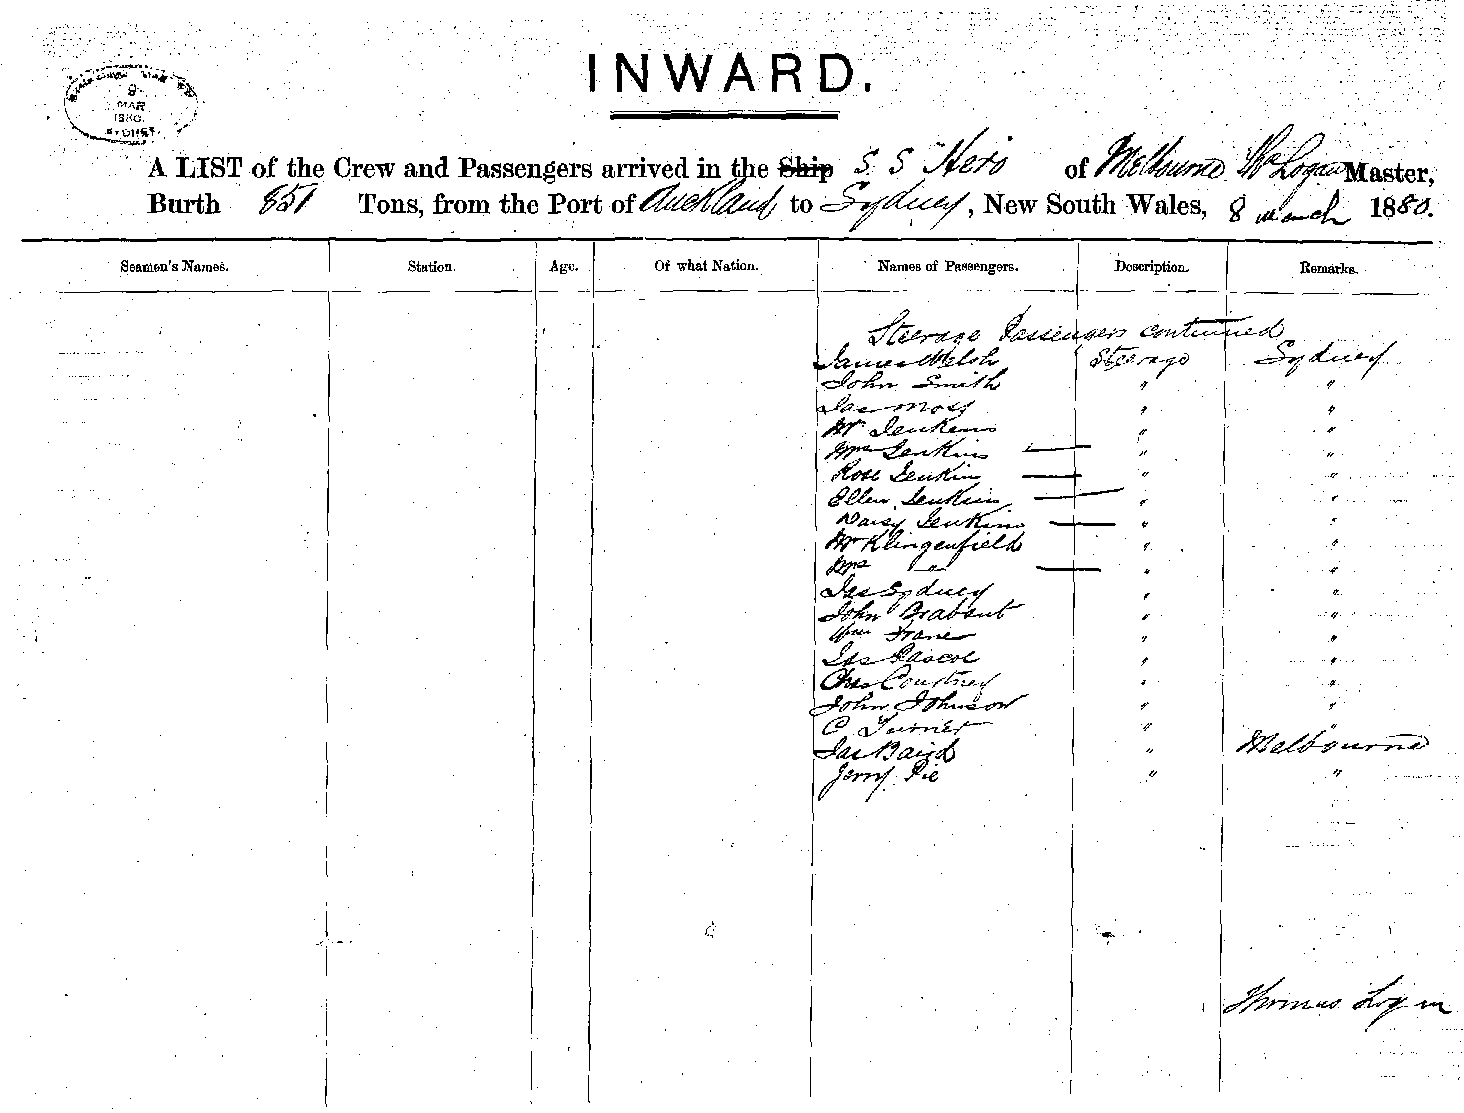 INWARD.
MAR
1880.
SYDNEY.
A LIST of the Crew and Passengers arrived in the Ship S. S "Hero of Melbourne Logan Master,
Burth 851 Tons, from the Port of Auckland to Sydney, New South Wales, 8 march 1880.
Seamen's Names. Station. Age. Of what Nation. Names of Passengers. Description. Remarks.
Steerage Passengers continued
James Welsh Steerage Sydney
John Smith " "
Jas Moss " "
Mr Jenkins " "
Mrs Jenkins — " "
Rose Jenkin — " "
Ellen Jenkins — " "
Daisy Jenkins — " "
Mr Klingenfield " "
Mrs " — " "
Jas Sydney " "
John Brabant " "
Wm " "
Jas Pascoe " "
Chas Courtney " "
John Johnson " "
C Turner " "
Jas Baird " Melbourne
Jerry Pie " "
Thomas Logan